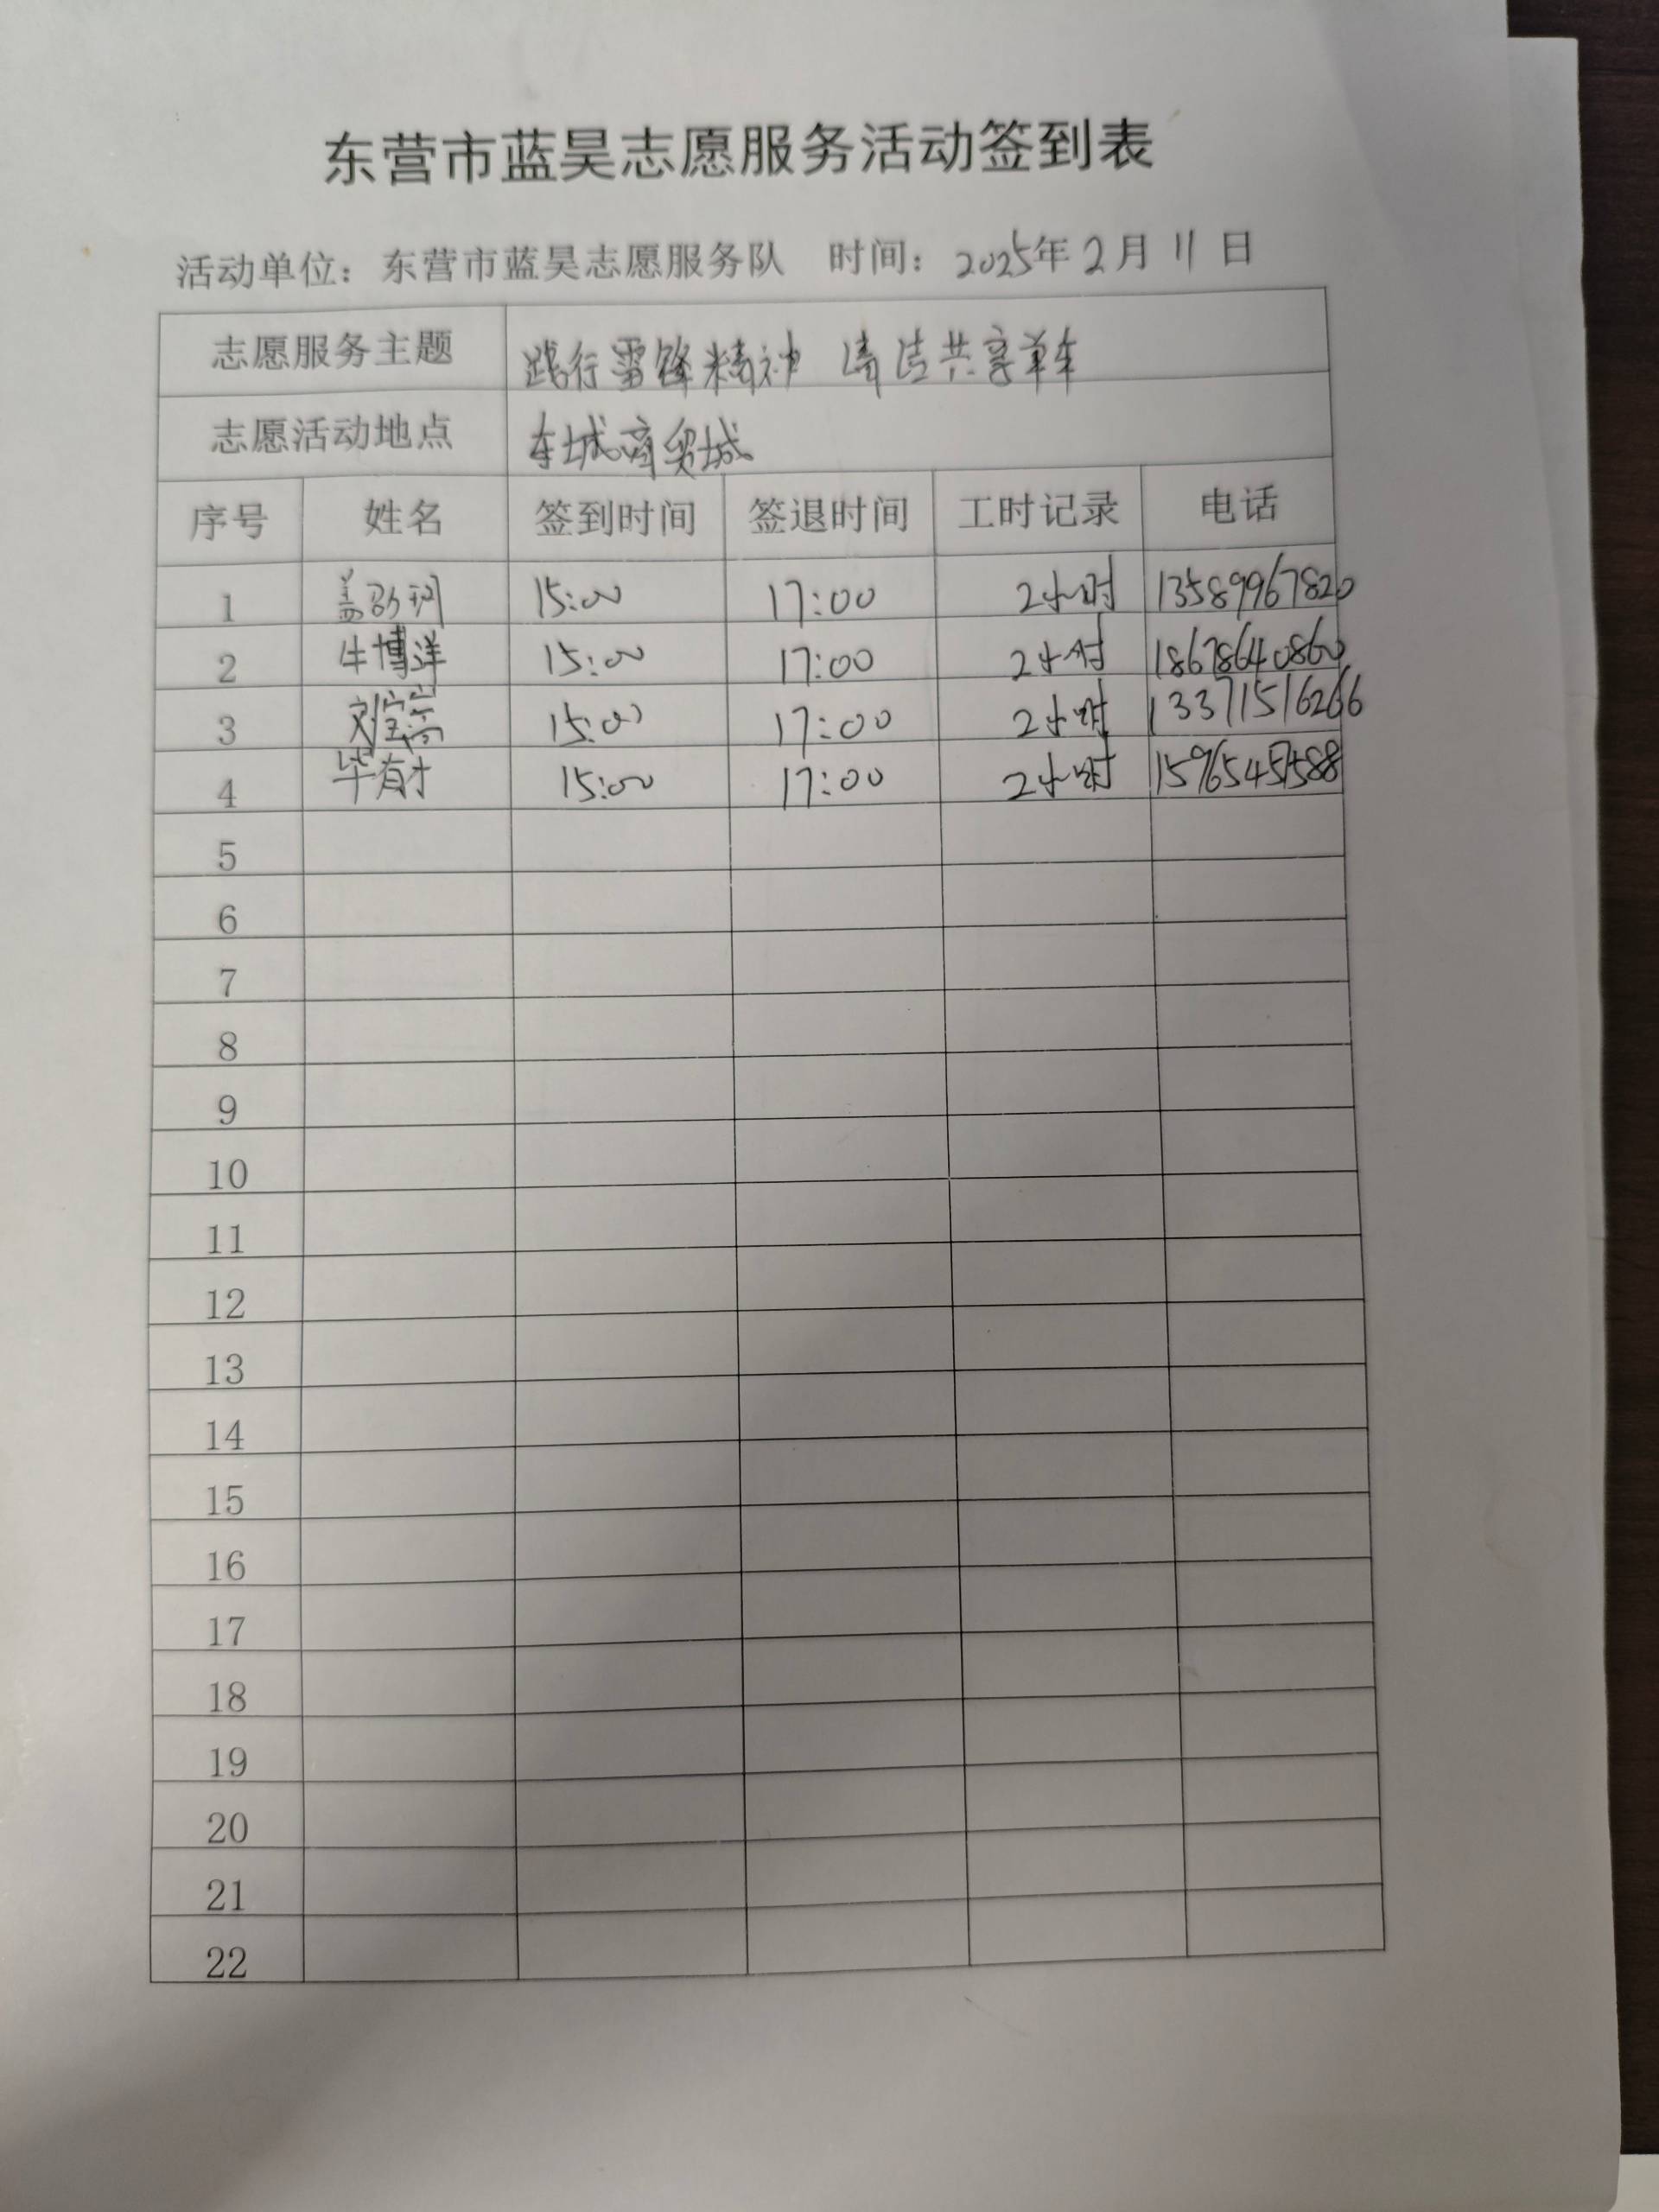 东营市蓝昊志愿服务活动签到表
活动单位：东营市蓝昊志愿服务队 时间：2025年2月11日
志愿服务主题 践行雷锋精神 清洁共享单车
志愿活动地点 东城商贸城
序号 姓名 签到时间 签退时间 工时记录 电话
1 盖 15:00 17:00 2小时 13589967820
2 牛博洋 15:00 17:00 2小时 18678640860
3 刘宝 15:00 17:00 2小时 13371516266
4 毕有才 15:00 17:00 2小时
5
6
7
8
9
10
11
12
13
14
15
16
17
18
19
20
21
22